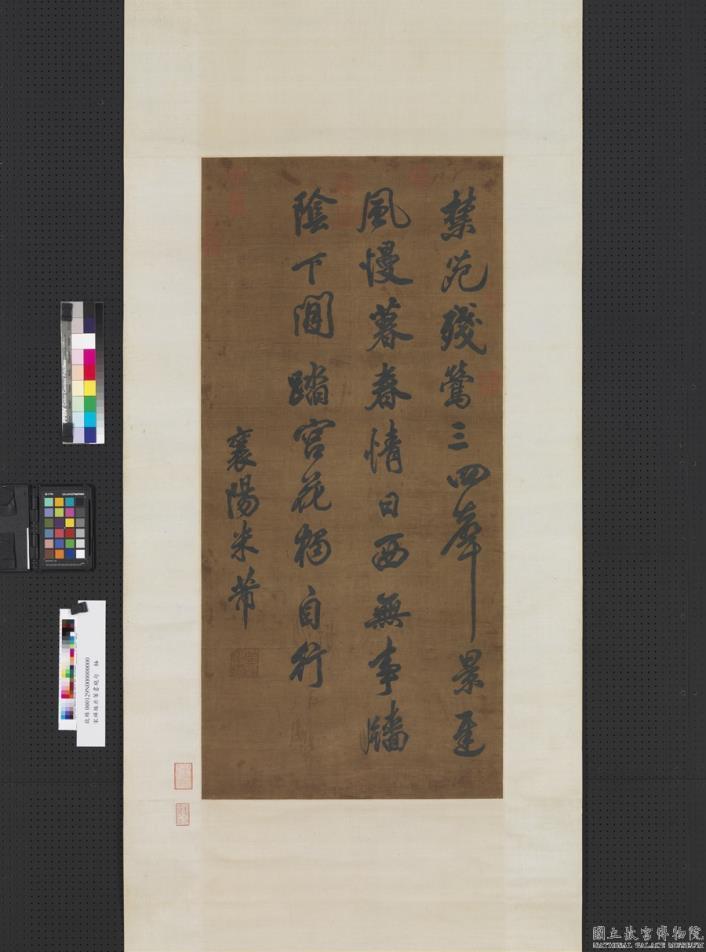 禁苑殘鶯三四聲景遲
風慢暮春情日西無事牆
陰下閒踏宮花獨自行
襄陽米芾
000129N000000000
國立故宮博物院
NATIONAL PALACE MUSEUM